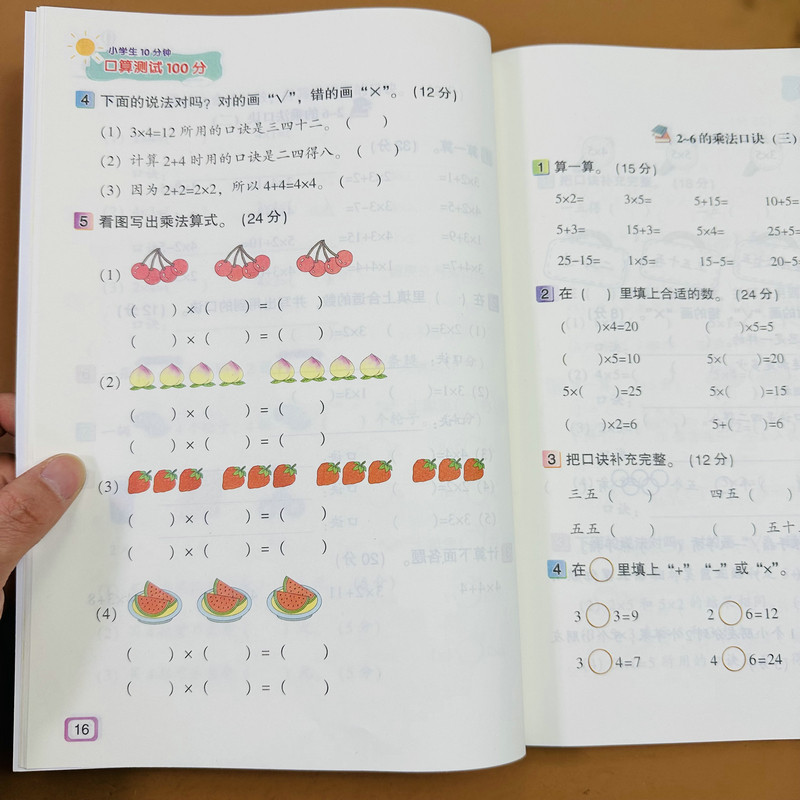 小学生10分钟
口算测试100分
4 下面的说法对吗？对的画“√”，错的画“×”。（12分）
（1）3×4=12 所用的口诀是三四十二。（　　）
（2）计算 2+4 时用的口诀是二四得八。（　　）
（3）因为 2+2=2×2，所以 4+4=4×4。（　　）
5 看图写出乘法算式。（24分）
（1）
（　　）×（　　）=（　　）
（　　）×（　　）=（　　）
（2）
（　　）×（　　）=（　　）
（　　）×（　　）=（　　）
（3）
（　　）×（　　）=（　　）
（　　）×（　　）=（　　）
（4）
（　　）×（　　）=（　　）
（　　）×（　　）=（　　）
16
2~6的乘法口诀（三）
1 算一算。（15分）
5×2= 3×5= 5+15= 10+5=
5+3= 15+3= 5×4= 25+5=
25-15= 1×5= 15-5= 20-5
2 在（　）里填上合适的数。（24分）
（　　）×4=20 （　　）×5=5
（　　）×5=10 5×（　　）=20
5×（　　）=25 5×（　　）=15
（　　）×2=6 5+（　　）=6
3 把口诀补充完整。（12分）
三五（　　） 四五（　　）
五五（　　） （　　）五十
4 在○里填上“+”“-”或“×”。
3○3=9 2○6=12
3○4=7 4○6=24